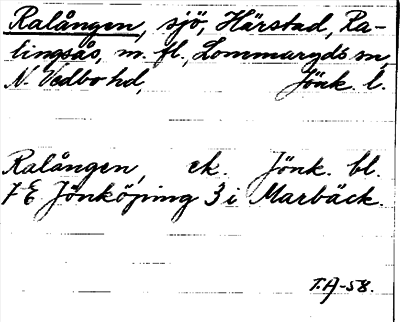 Ralången, sjö, Härstad, Ra-
lingsås, m. fl., Lommaryds sn,
N. Vedbo hd, Jönk. l.
Ralången, ek. Jönk. bl.
7 E Jönköping 3 i Marbäck.
T.A-58.